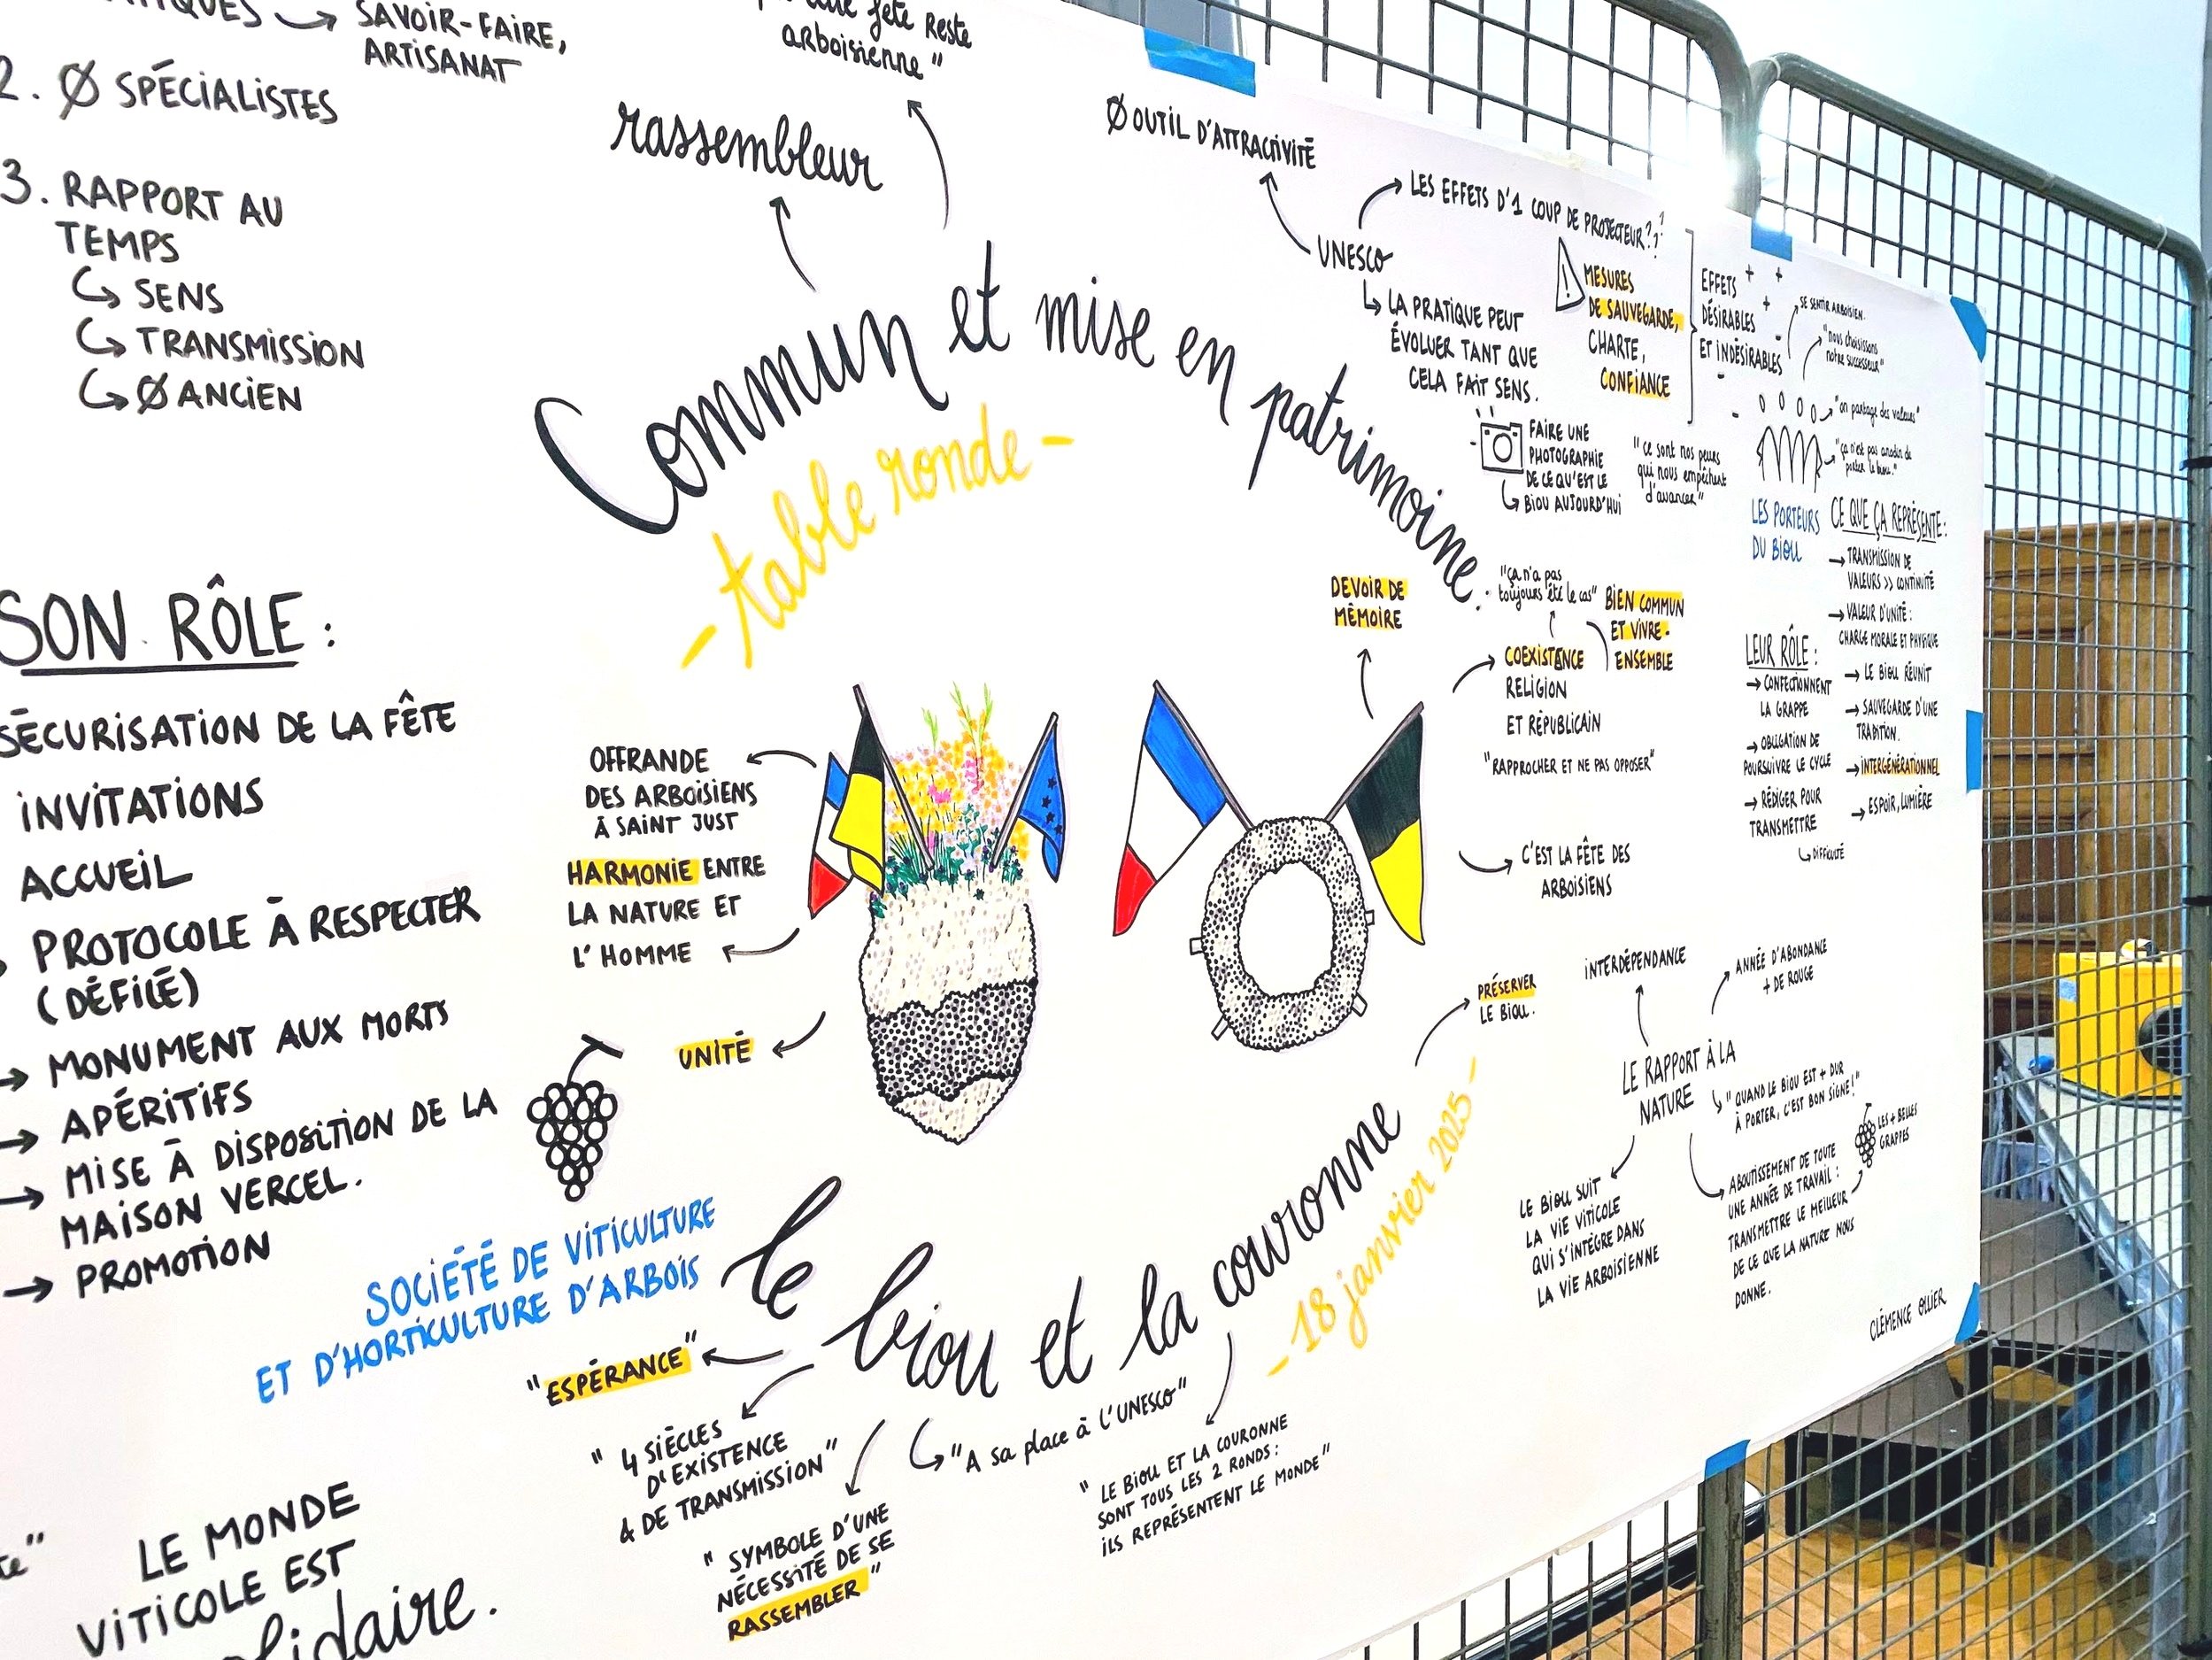 SAVOIR-FAIRE,
ARTISANAT
2. Ø SPÉCIALISTES
3. RAPPORT AU
TEMPS
SENS
TRANSMISSION
Ø ANCIEN
SON RÔLE :
SÉCURISATION DE LA FÊTE
INVITATIONS
ACCUEIL
PROTOCOLE À RESPECTER
(DÉFILÉ)
→ MONUMENT AUX MORTS
→ APÉRITIFS
→ MISE À DISPOSITION DE LA
MAISON VERCEL.
→ PROMOTION
SOCIÉTÉ DE VITICULTURE
ET D'HORTICULTURE D'ARBOIS
LE MONDE
VITICOLE EST
fête reste
arboisienne"
rassembleur
Commun et mise en patrimoine.
- table ronde -
OFFRANDE
DES ARBOISIENS
À SAINT JUST
HARMONIE ENTRE
LA NATURE ET
L'HOMME
UNITÉ
le biou et la couronne
- 18 janvier 2025 -
"ESPÉRANCE"
"4 SIÈCLES
D'EXISTENCE
& DE TRANSMISSION"
"SYMBOLE D'UNE
NÉCESSITÉ DE SE
RASSEMBLER"
"A sa place à L'UNESCO"
"LE BIOU ET LA COURONNE
SONT TOUS LES 2 RONDS :
ILS REPRÉSENTENT LE MONDE"
Ø OUTIL D'ATTRACTIVITÉ
UNESCO
LES EFFETS D'1 COUP DE PROJECTEUR???
LA PRATIQUE PEUT
ÉVOLUER TANT QUE
CELA FAIT SENS.
MESURES
DE SAUVEGARDE,
CHARTE,
CONFIANCE
EFFETS
DÉSIRABLES
ET INDÉSIRABLES
FAIRE UNE
PHOTOGRAPHIE
DE CE QU'EST LE
BIOU AUJOURD'HUI
"ce sont nos peurs
qui nous empêchent
d'avancer"
DEVOIR DE
MÉMOIRE
"ça n'a pas
toujours été le cas"
BIEN COMMUN
ET VIVRE-
ENSEMBLE
COEXISTENCE
RELIGION
ET RÉPUBLICAIN
"RAPPROCHER ET NE PAS OPPOSER"
C'EST LA FÊTE DES
ARBOISIENS
PRÉSERVER
LE BIOU.
SE SENTIR ARBOISIEN.
"nous choisissons
notre successeur"
"on partage des valeurs"
"ça n'est pas anodin de
porter le biou."
LES PORTEURS
DU BIOU
LEUR RÔLE :
→ CONFECTIONNENT
LA GRAPPE
→ OBLIGATION DE
POURSUIVRE LE CYCLE
→ RÉDIGER POUR
TRANSMETTRE
DIFFICULTÉ
CE QUE ÇA REPRÉSENTE :
→ TRANSMISSION DE
VALEURS >> CONTINUITÉ
→ VALEUR D'UNITÉ :
CHARGE MORALE ET PHYSIQUE
→ LE BIOU RÉUNIT
→ SAUVEGARDE D'UNE
TRADITION.
→ INTERGÉNÉRATIONNEL
→ ESPOIR, LUMIÈRE
INTERDÉPENDANCE
ANNÉE D'ABONDANCE
+ DE ROUGE
LE RAPPORT À LA
NATURE
"QUAND LE BIOU EST + DUR
À PORTER, C'EST BON SIGNE!"
LES + BELLES
GRAPPES
LE BIOU SUIT
LA VIE VITICOLE
QUI S'INTÈGRE DANS
LA VIE ARBOISIENNE
ABOUTISSEMENT DE TOUTE
UNE ANNÉE DE TRAVAIL :
TRANSMETTRE LE MEILLEUR
DE CE QUE LA NATURE NOUS
DONNE.
CLÉMENCE OLLIER